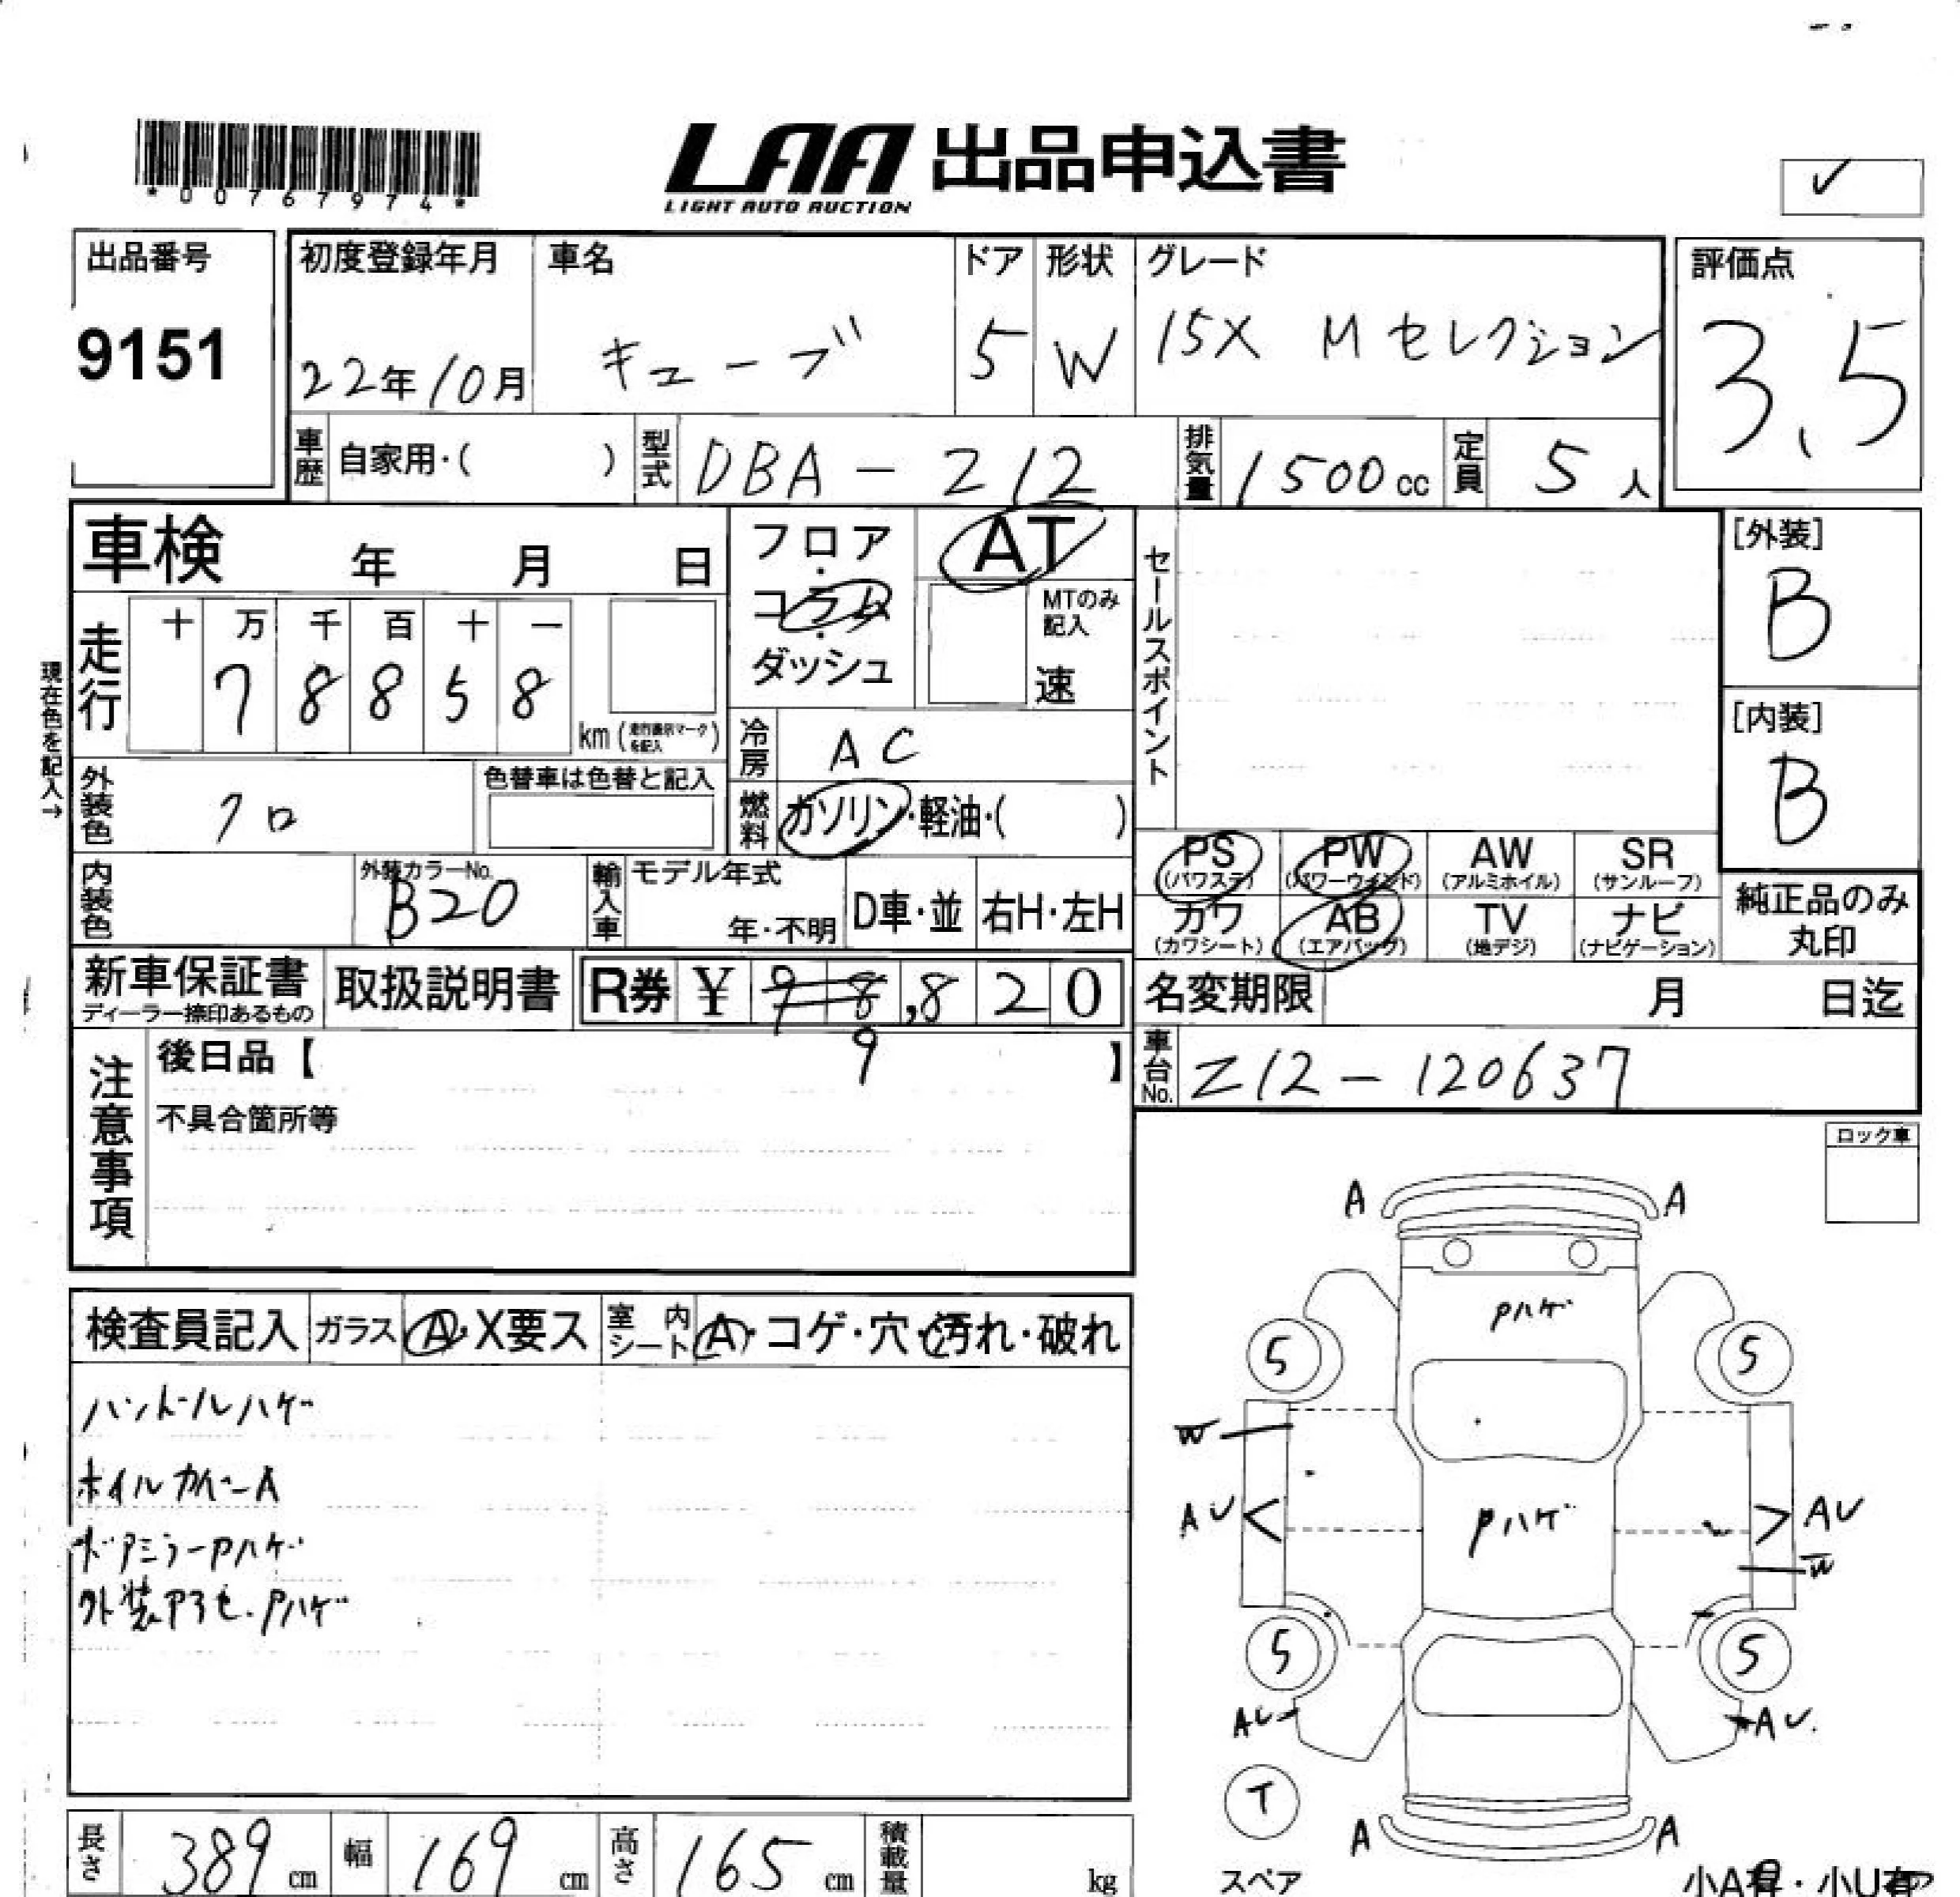 *00767974*
LAA 出品申込書
LIGHT AUTO AUCTION
✓
出品番号
9151
初度登録年月
22年10月
車名
キューブ
ドア
5
形状
W
グレード
15X Mセレクション
評価点
3.5
車歴 自家用・( )
型式 DBA-Z12
排気量 1500cc
定員 5人
車検 年 月 日
フロア・コラム・ダッシュ
AT
MTのみ記入
速
セールスポイント
[外装]
B
[内装]
B
現在色を記入→
走行
十 万 千 百 十 一
7 8 8 5 8
km
冷房 AC
外装色 クロ
色替車は色替と記入
燃料 ガソリン・軽油・( )
PS (パワステ)
PW (パワーウインド)
AW (アルミホイル)
SR (サンルーフ)
内装色
外装カラーNo. B20
輸入車
モデル年式
年・不明
D車・並
右H・左H
カワ (カワシート)
AB (エアバッグ)
TV (地デジ)
ナビ (ナビゲーション)
純正品のみ
丸印
新車保証書
ディーラー捺印あるもの
取扱説明書
R券 ¥ 9 8,8 2 0
9
名変期限 月 日迄
注意事項
後日品【 】
不具合箇所等
車台No. Z12-120637
ロック車
検査員記入
ガラス A・X要ス
室内シート A・コゲ・穴・汚れ・破れ
ハンドルハゲ
ホイルカバーA
ドアミラーPハゲ
外装アクセ.Pハゲ
A A
Pハゲ
5 5
W
AU Pハゲ AU
W
5 5
AU AU.
T
スペア
A A
長さ 389cm
幅 169cm
高さ 165cm
積載量 kg
小A有・小U有